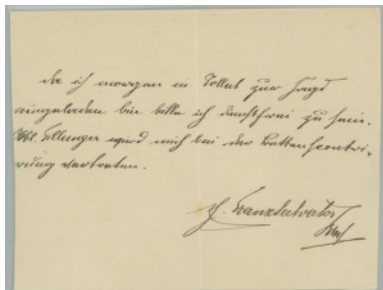 Da ich morgen in Tollet zur Jagd
eingeladen bin bitte ich dienstfrei zu sein.
Obl. Ellinger wird mich bei der
rung vertreten.
Franz Salvator